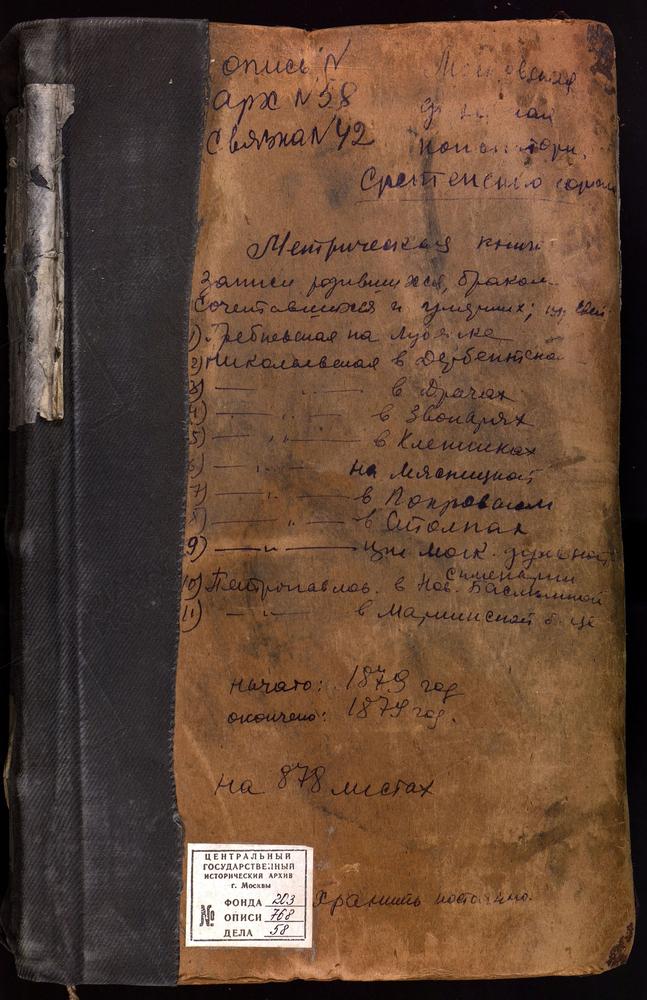 опись N
Московская
арх N 58
духовная
Связка N 42
консистория,
Сретенского сорока
Метрическая книга
Записи родившихся, браком
сочетавшихся и умерших; церквей
1) Гребневская на Лубянке
2) Николаевская в Дербентском
3) — " — в Драчах
4) — " — в Звонарях
5) — " — в Клениках
6) — " — на Мясницкой
7) — " — в Покровском
8) — " — в Столпах
9) — " — при моск. духовной
семинарии
10) Петропавлов. в Нов. Басманной
11) — " — в Мариинской б-це
начато: 1879 год
окончено: 1879 год.
на 878 листах
ЦЕНТРАЛЬНЫЙ
ГОСУДАРСТВЕННЫЙ
ИСТОРИЧЕСКИЙ АРХИВ
г. Москвы
№
ФОНДА 203
ОПИСИ 768
ДЕЛА 58
Хранить постоянно.